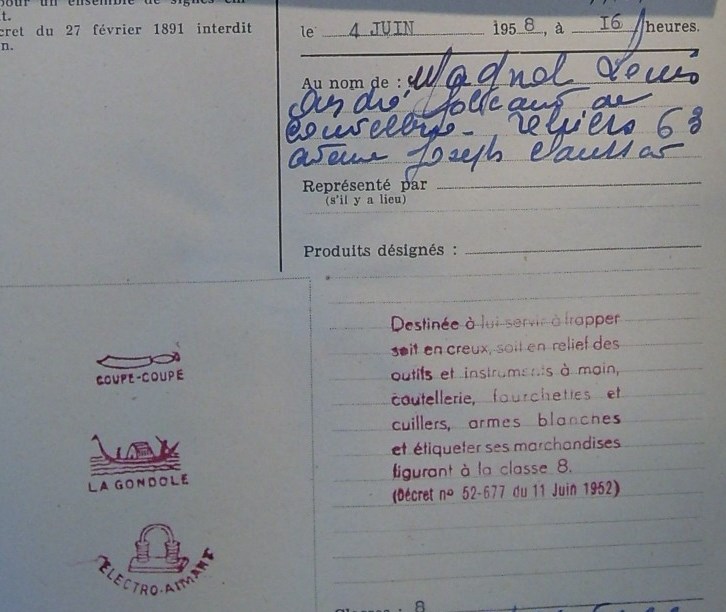 t.
cret du 27 février 1891 interdit
n.
le 4 JUIN 1958, à 16 heures.
Au nom de : Magnol Louis
André fabricant de
coutellerie - Thiers 63
avenue Joseph Claussat
Représenté par
(s'il y a lieu)
Produits désignés :
COUPE-COUPE
LA GONDOLE
ÉLECTRO-AIMANT
Destinée à lui servir à frapper
soit en creux, soit en relief des
outils et instruments à main,
coutellerie, fourchettes et
cuillers, armes blanches
et étiqueter ses marchandises
figurant à la classe 8.
(Décret nº 52-677 du 11 Juin 1952)
8